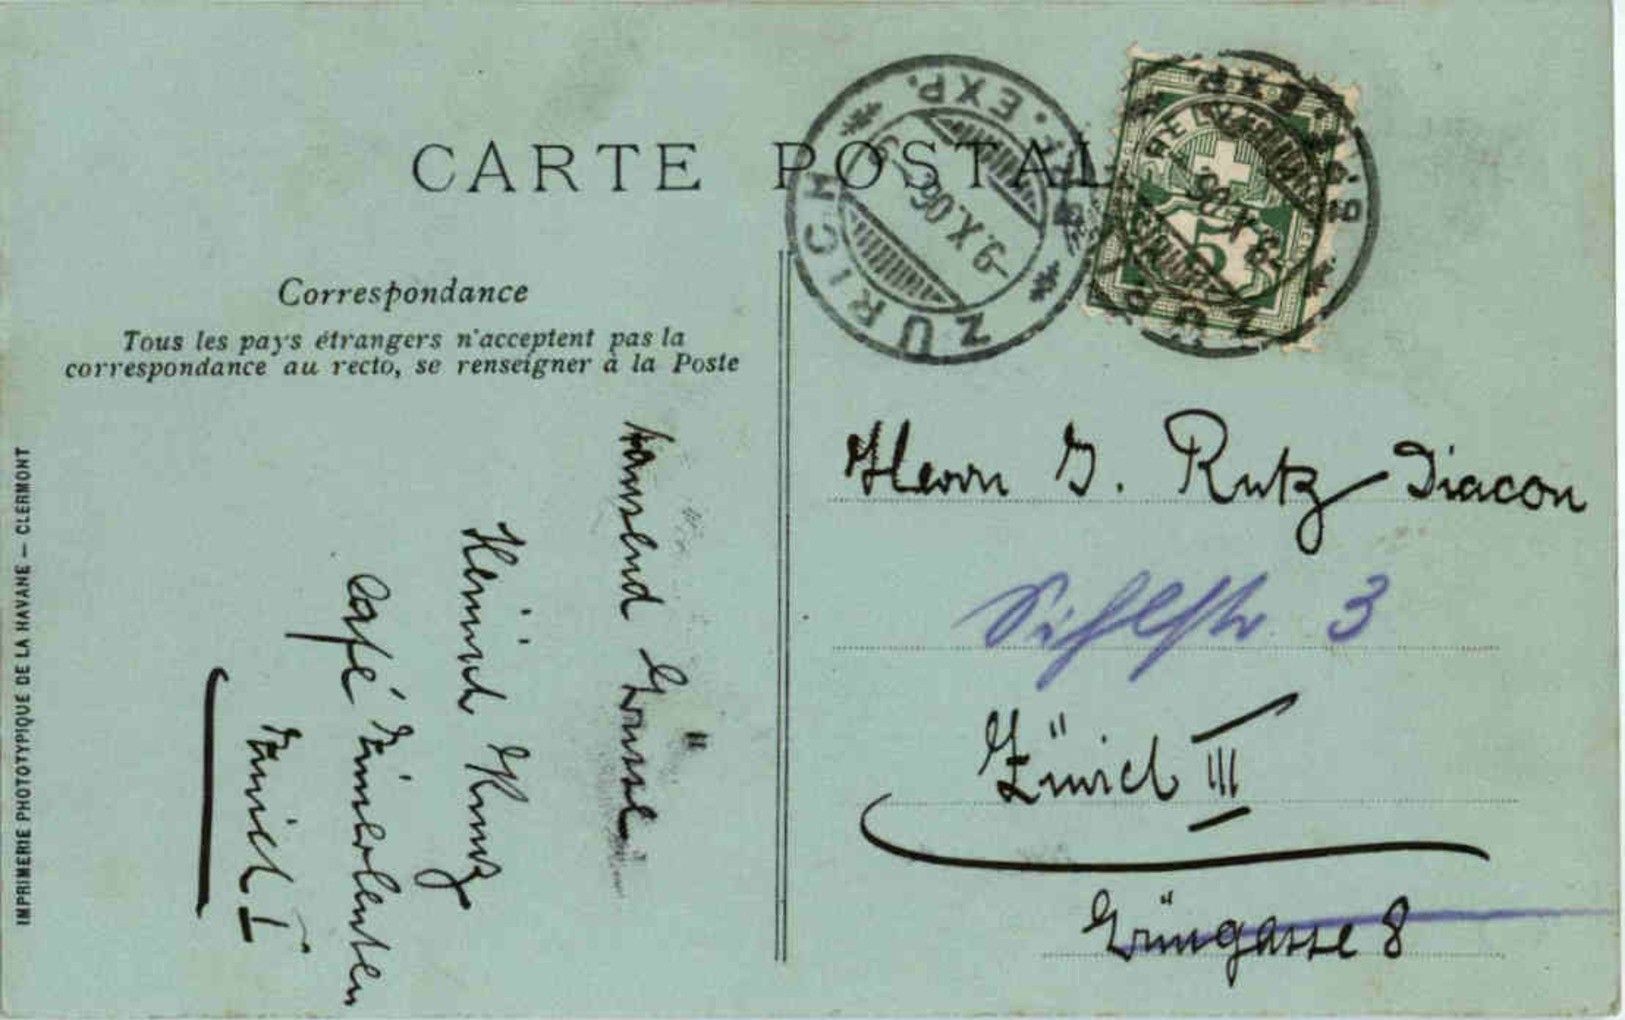 CARTE POSTALE
ZÜRICH
BRF. EXP.
-9.X.06.-5
HELVETIA
5
ZÜRICH
BRF. EXP.
-9.X.06.
Correspondance
Tous les pays étrangers n'acceptent pas la
correspondance au recto, se renseigner à la Poste
IMPRIMERIE PHOTOTYPIQUE DE LA HAVANE – CLERMONT
tausend Grüsse
Heinrich Kunz
Café
Zürich I
Herrn J. Rutz-Diacon
Sihlstr. 3
Zürich III
Grüngasse 8